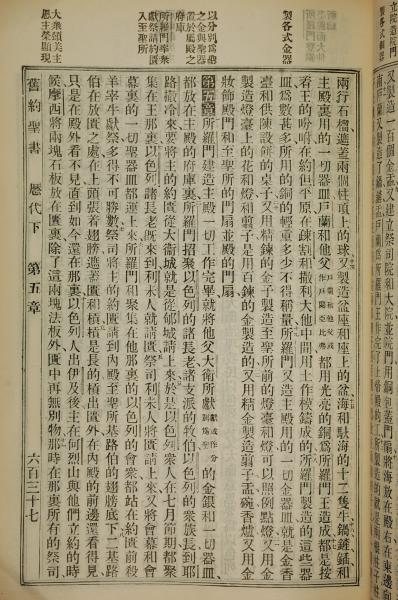 製各式金器
以分別爲聖
之金與聖器
置於殿之
府庫
所羅門率衆
獻祭請約匱
入至聖所
大衆頌美主
恩主榮顯現
兩行石榴遮蓋兩個柱頂上的球○又製造盆座和座上的盆海和馱海的十二隻牛鍋鏟鍤和
主殿裏用的一切器皿戶蘭和他父都用光亮的銅爲所羅門王造成都是按
着王的吩咐在約但平原在疎割和撒利大他中間用土作模鑄成的所羅門製造的這些器
皿爲數甚多所用的銅的輕重多少不得稱量所羅門又造主殿用的一切金器皿就是金香
臺和供陳設餅的桌子又用精鍊的金子製造至聖所前的燈臺和燈盞可以照例點燈又用金
製造燈臺上的花和燈和剪子是用百鍊的金製造的又用精金製造剪子盂碗香爐又用金
妝飾殿門和至聖所的門扇並殿的門扇
第五章所羅門建造主殿一切工作完畢就將他父大衛所獻獻或作分別爲聖的金銀和一切器皿
都放在主殿的府庫裏所羅門招聚以色列的諸長老諸支派的牧伯以色列的衆族長到耶
路撒冷來要將主的約匱從大衛城就是從郇城請上來於是以色列衆人在七月節期都聚
集在王那裏以色列諸長老旣來到利未人就請匱祭司利未人將匱請上來又將會幕和會
幕裏的一切聖器皿都運上來所羅門和聚集在他那裏的以色列的會衆都站在約匱前殺
羊宰牛獻祭多得不可勝數祭司將主的約匱請到內殿至聖所基路伯的翅膀底下二基路
伯在放匱之處在上面張着翅膀遮蓋匱和槓槓是長的槓出匱外在內殿的前邊還看得見
只是在殿外看不見直到如今還在那裏以色列人出伊及後主在何烈山與他們立約的時
候摩西將兩塊石板放在匱裏除了這兩塊法板外匱中再無別物那時在那裏所有的祭司
舊約聖書 歷代下 第五章 六百三十七